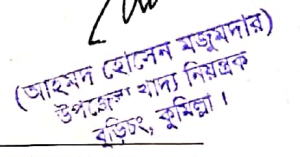 (আহমদ হোসেন মজুমদার)
উপজেলা খাদ্য নিয়ন্ত্রক
বুড়িচং, কুমিল্লা।